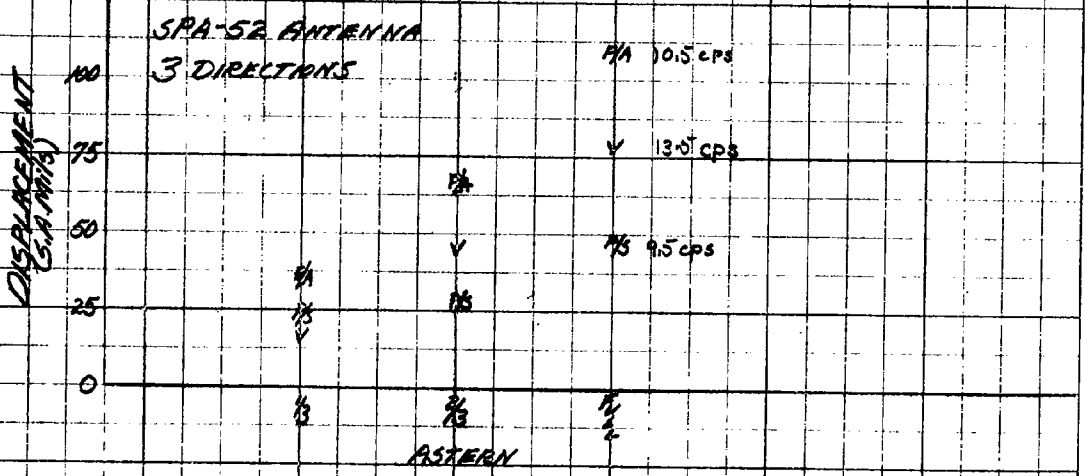 SPA-52 ANTENNA
3 DIRECTIONS
DISPLACEMENT
(S.A. Mils)
100
75
50
25
0
F/A 10.5 cps
V 13.5 cps
P/S 9.5 cps
F/A
V
P/S
F/A
P/S
V
1/3
2/3
FULL
ASTERN